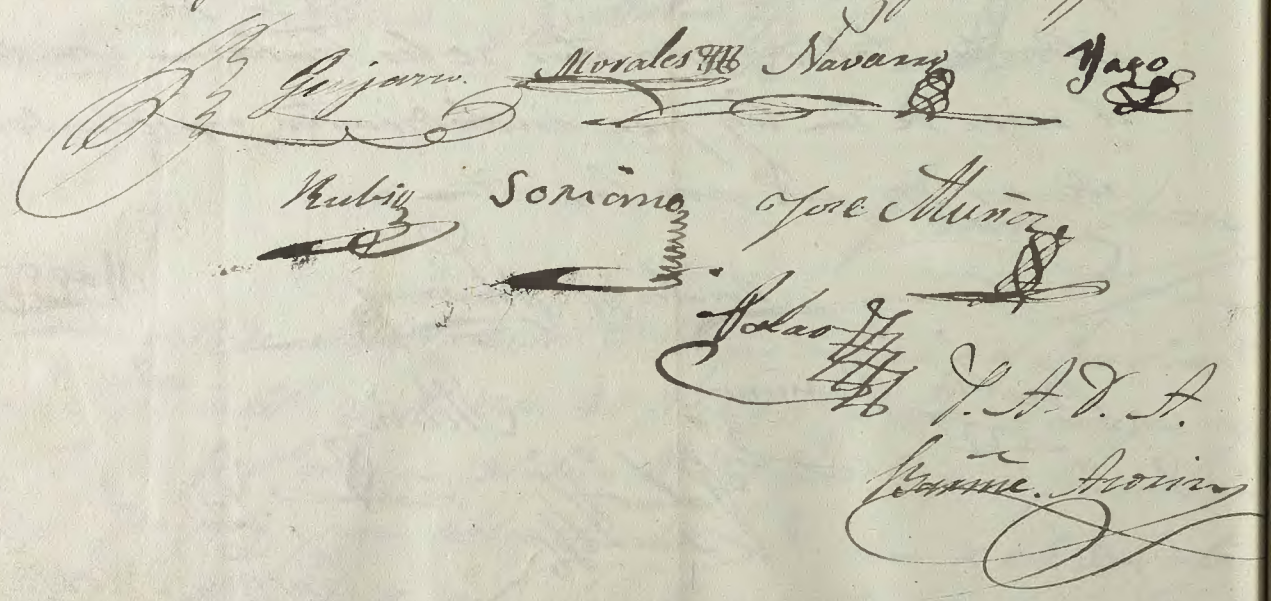 Guijarro. Morales Navarro Yago
Rubio Soriano Jose Muñoz
Palao
P. A. D. A.
Bartme.